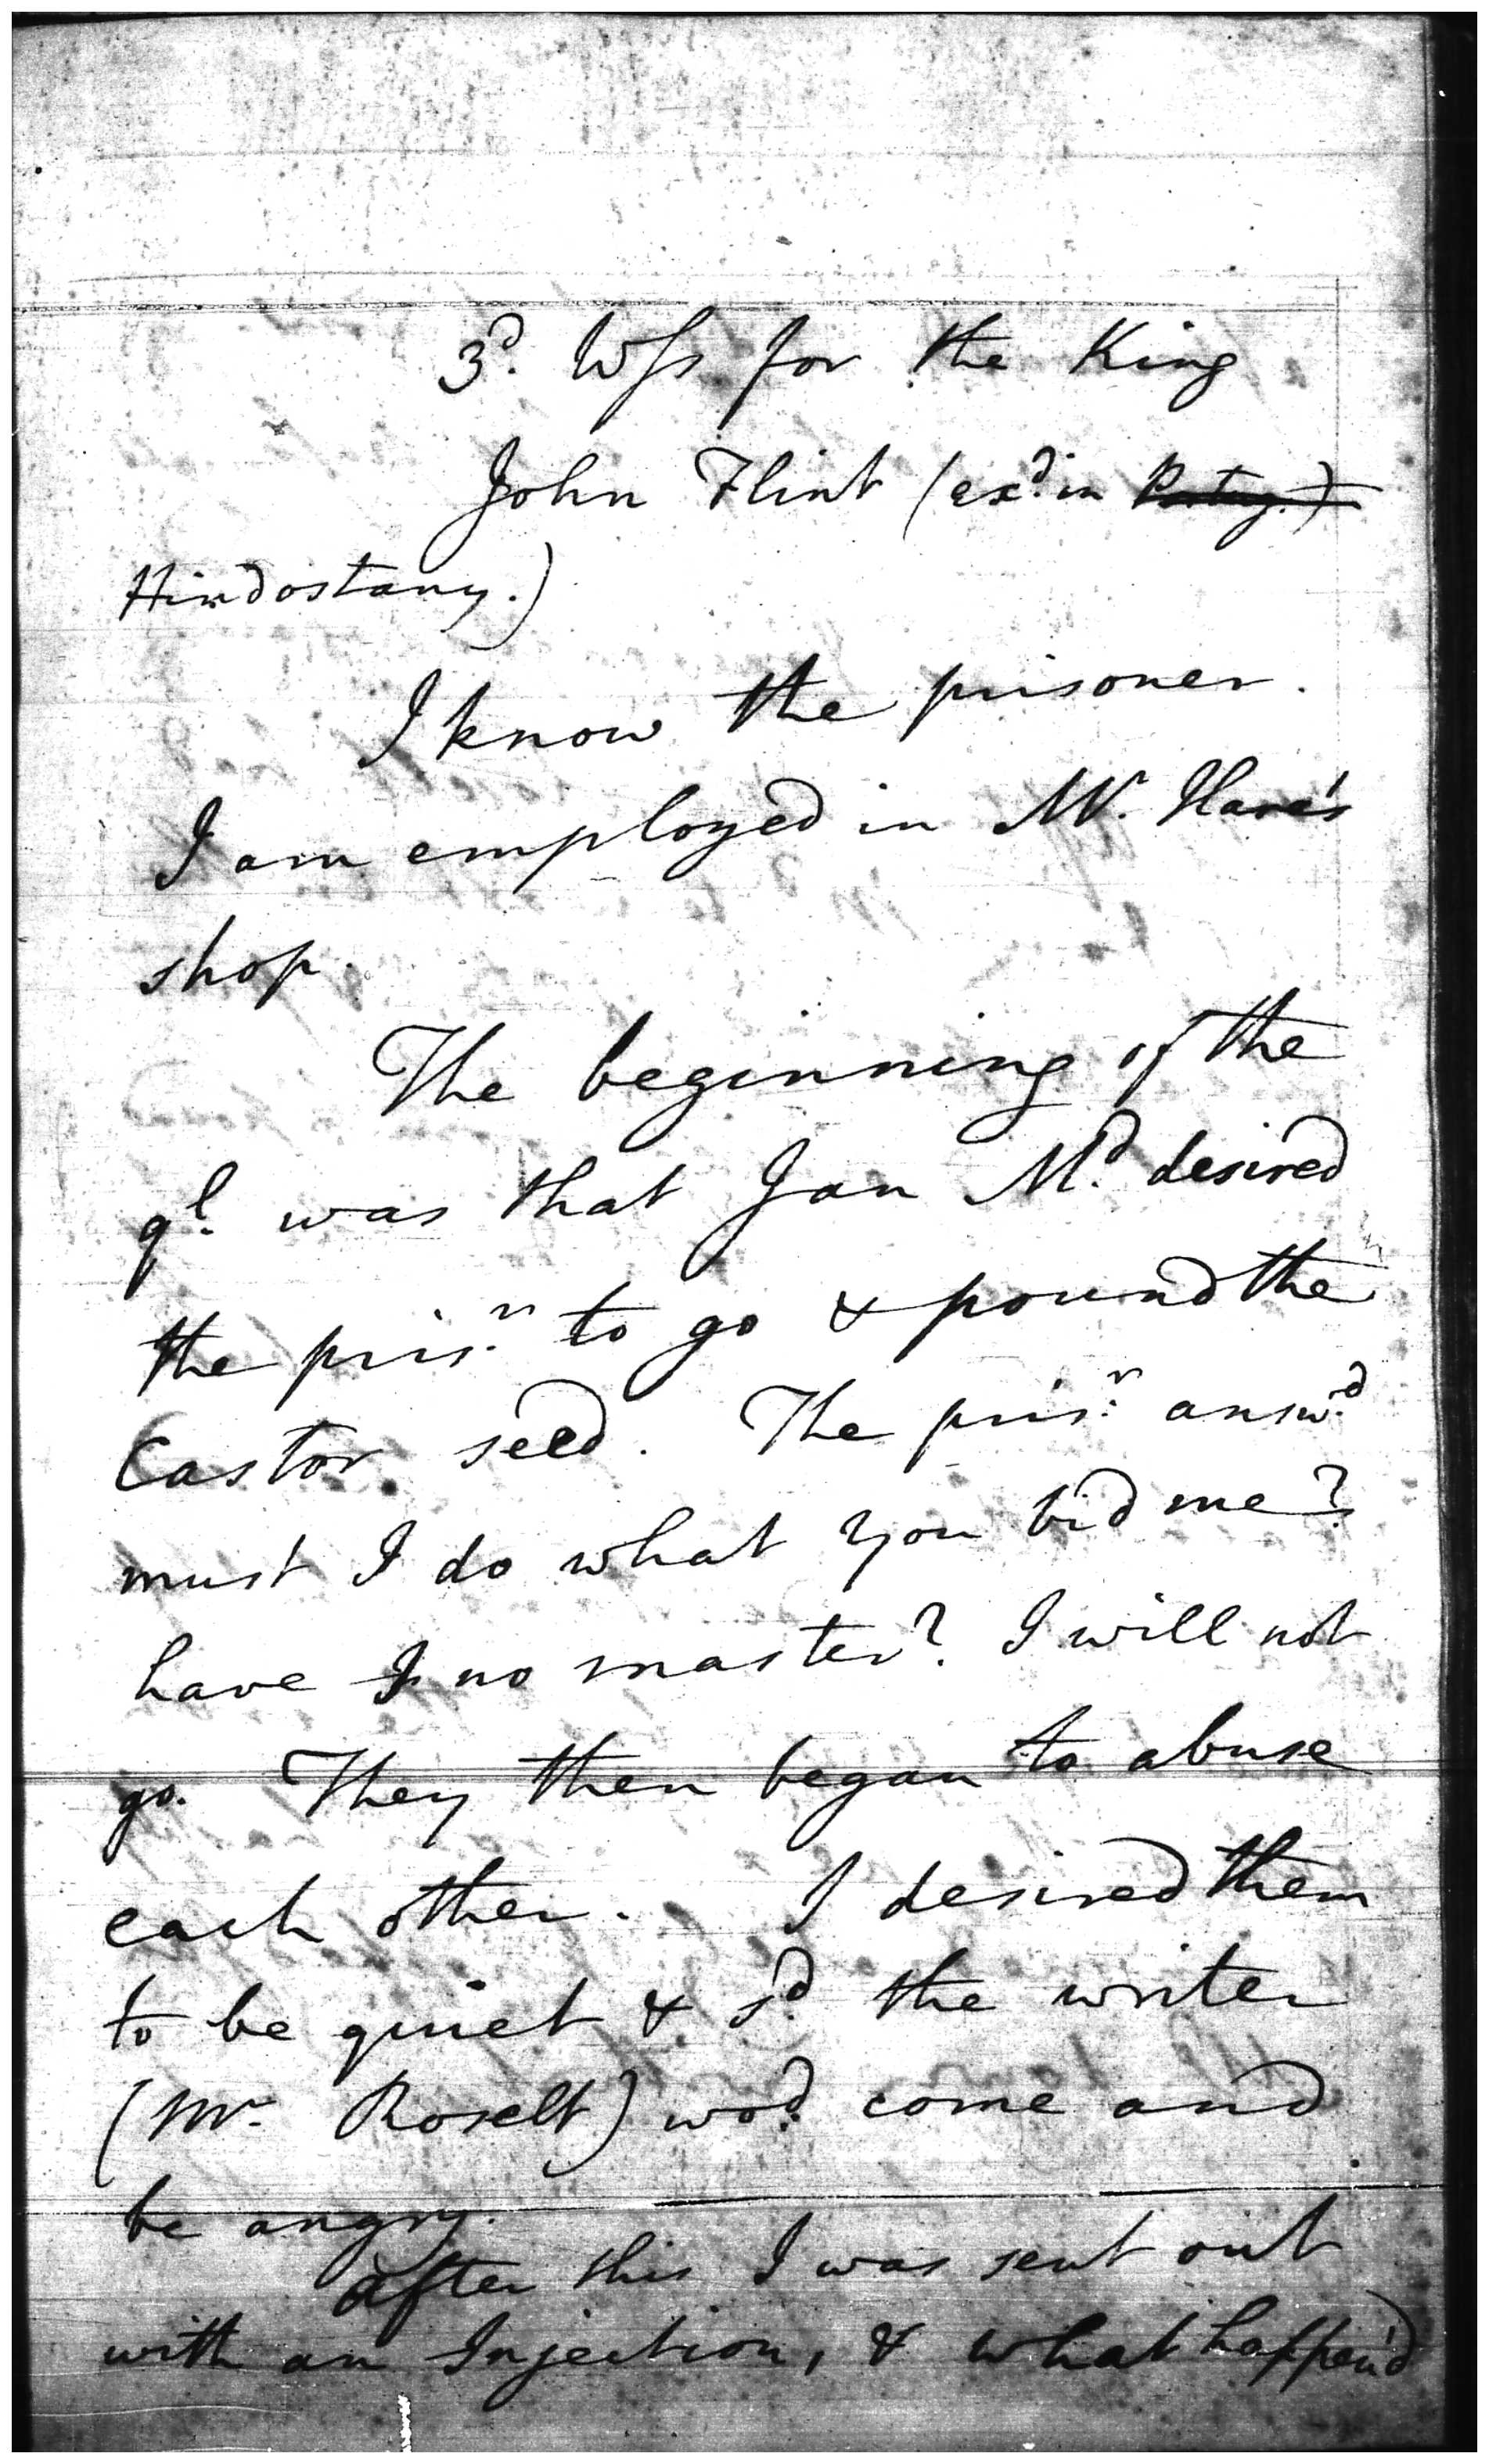 3d. Wss for the King
John Flint (exd. in Portug.)
Hindostany.)
I know the prisoner.
I am employed in Mr. Hare's
shop.
The beginning of the
ql. was that Jan Md. desired
the prisr. to go & pound the
Castor seed. The prisr. answd.
must I do what you bid me?
have I no master? I will not
go. They then began to abuse
each other. I desired them
to be quiet & sd. the writer
(Mr. Roselt) wod. come and
be angry.
after this I was sent out
with an Injection, & what happen'd